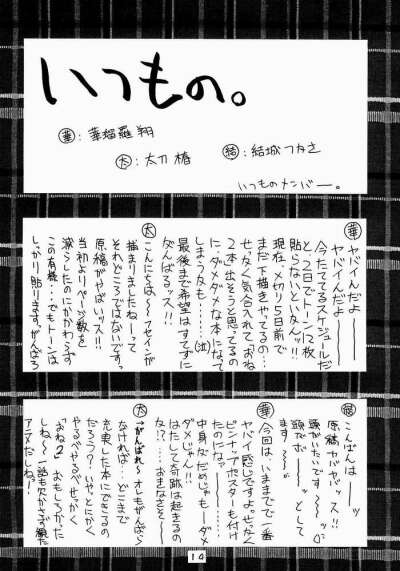 いつもの。
華：華瑠羅 翔
太：太刀 椿
結：結城つかさ
いつものメンバー。
華
ヤバイんだよ――
ヤバイんだよ――
今たててるスケジュールだ
と1日でトーン12枚
貼らないといかんッ!!
現在、〆切り5日前で
まだ下描きやってるの…
せっかく気合入れて、おね
2本出そうと思ってるの
に、ダメダメな本になって
しまうなも……(泣)
最後まで希望はすてずに
がんばるッス!!
太
こんにちは～、フセインが
捕まりましたねーって
それどころではないです。
原稿がやばいッス!!
当初よりページ数を
減らしたのにかかわらず
この有様…でもトーンは
しっかり貼ります。がんばろ
結
こんばんは――ッ
原稿ヤバヤバッス!!
頭がいたいです～～
頭でボ――ッとして
ます～～
華
今回は、いままでで一番
ヤバイ感じですよ。せっかく
ピンナップポスターも付け
たのになァ
中身がだめじゃも―ダメ
ダメじゃん!!
はたして奇跡は起きるの
か!?…おきなさそ―
太
"がんばれ～オレもがんばら
なければ…どこまで
充実した本にできるの
だろう?いやとにかく
やるべやるべせっかく
「おね2」おもしろかった
しね～1話も欠かさず観た
アニメだしねっ!
14